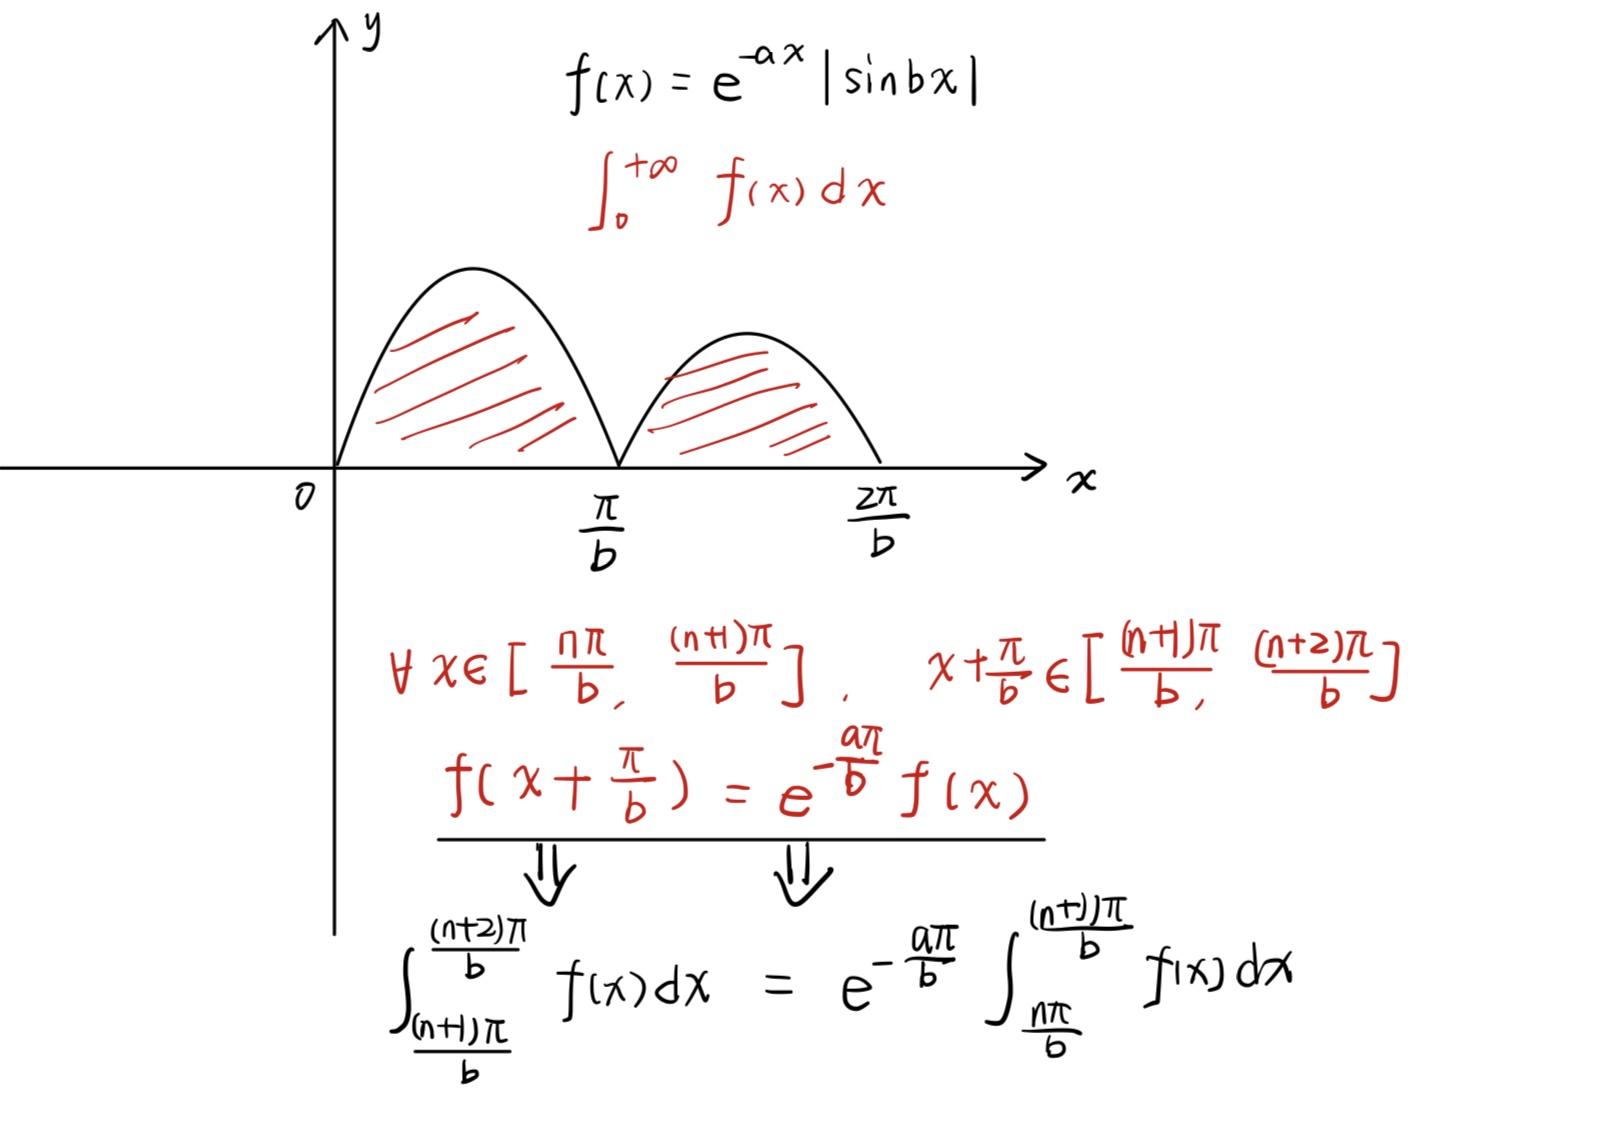 y
f(x) = e^{-ax} |sinbx|
∫_0^{+∞} f(x) dx
0 π/b 2π/b x
∀ x∈[ nπ/b, (n+1)π/b ], x+π/b ∈[ (n+1)π/b, (n+2)π/b ]
f( x + π/b ) = e^{-aπ/b} f(x)
⇓ ⇓
∫_{(n+1)π/b}^{(n+2)π/b} f(x)dx = e^{-aπ/b} ∫_{nπ/b}^{(n+1)π/b} f(x)dx